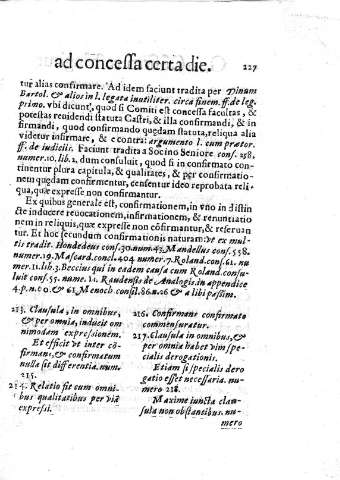 ad concessa certa die. 227
tur alias confirmare. Ad idem faciunt tradita per Dinum
Bartol. & alios in l. legata inutiliter. circa finem. ff. de leg.
primo. vbi dicunt, quod si Comiti est concessa facultas, &
potestas reuidendi statuta Castri, & illa confirmandi, & in
firmandi, quod confirmando quædam statuta, reliqua alia
videtur infirmare, & e contra: argumento l. cum prætor.
ff. de iudiciis. Faciunt tradita a Socino Seniore cons. 258.
numer. 10. lib. 2. dum consuluit, quod si in confirmato con
tinentur plura capitula, & qualitates, & per confirmatio-
nem quædam confirmentur, censentur ideo reprobata reli-
qua, quæ expresse non confirmantur.
Ex quibus generale est, confirmationem, in vno in distin
cte inducere reuocationem, infirmationem, & renunciatio
nem in reliquis, quæ expresse non cõfirmantur, & reseruan
tur. Et hoc secundum confirmationis naturam: vt ex mul-
tis tradit. Hondedeus cons. 30. num. 45. Mandellus cons. 558.
numer. 19. Mascard. concl. 404 numer. 7. Roland. cons. 61. nu
mer. 11. lib. 3. Beccius qui in eadem causa cum Roland. consu-
luit cons. 55. nume. 11. Raudensis de Analogis. in appendice
4. p. n. 00. & 63 Menoch. consil. 86. n. 26 & alibi passim.
213. Clausula, in omnibus,
& per omnia, inducit om
nimodam expressionem.
Et efficit vt inter cõ
firmans, & confirmatum
nulla sit differentia. num.
215.
214. Relatio fit cum omni-
bus qualitatibus per viã
expressi.
216. Confirmans confirmato
commensuratur.
217. Clausula in omnibus, &
per omnia habet vim spe-
cialis derogationis.
Etiam si specialis dero
gatio esset necessaria. nu-
mero 218.
Maxime iuncta clau-
sula non obstantibus. nu-
mero